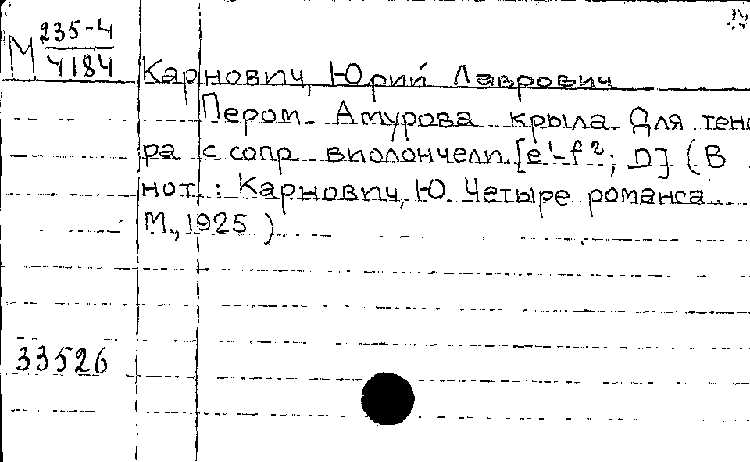 М 235-4
4184
Карнович, Юрий Лаврович
Пером Амурова крыла. Для тено
ра с сопр виолончели. [e¹-f²; D] (В
нот.: Карнович, Ю. Четыре романса
М., 1925)
33526